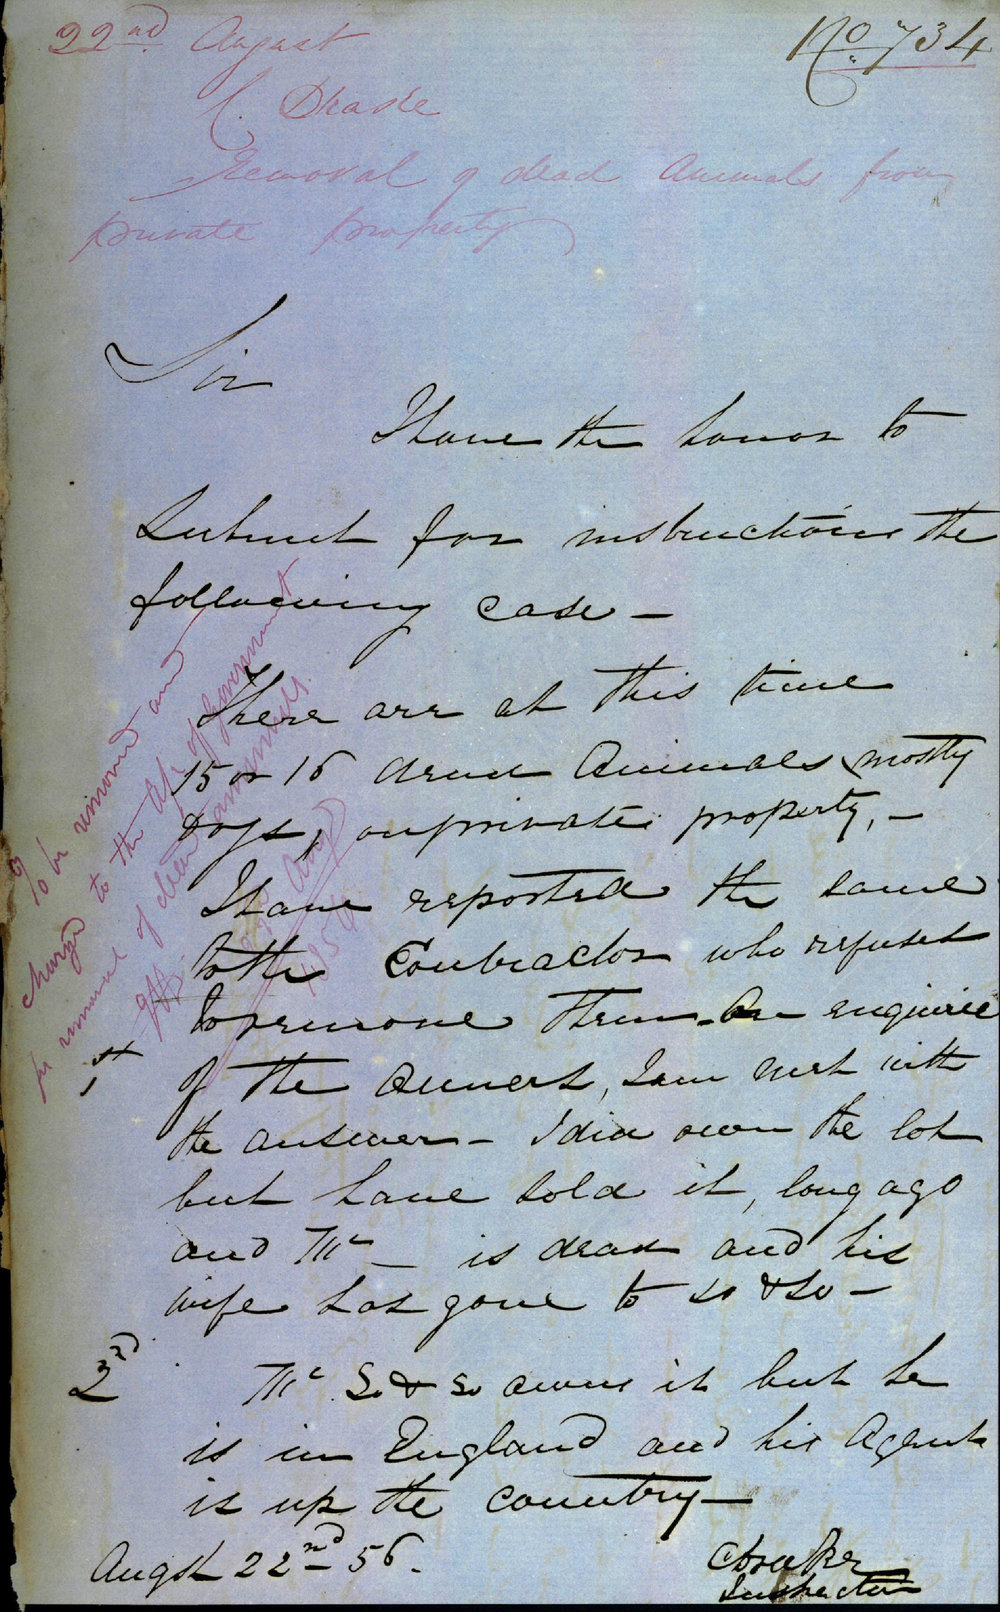 22nd August
No. 734
C. Drake
Removal of dead Animals from
private property
Sir
I have the honor to
Submit for instructions the
following case —
There are at this time
15 or 16 dead Animals, mostly
Dogs, on private property, —
I have reported the same
to the Contractor who refuses
to remove them. On enquiries
of the owners, I am met with
the answer — I did own the lot
but have sold it, long ago
and Mr — is dead and his
wife has gone to so & so —
1st
2nd
Mr So & so owns it but he
is in England and his Agent
is up the country —
Augst 22nd 56.
Inspector
To be removed and
charged to the of Government
for removal of dead animals.
Aug